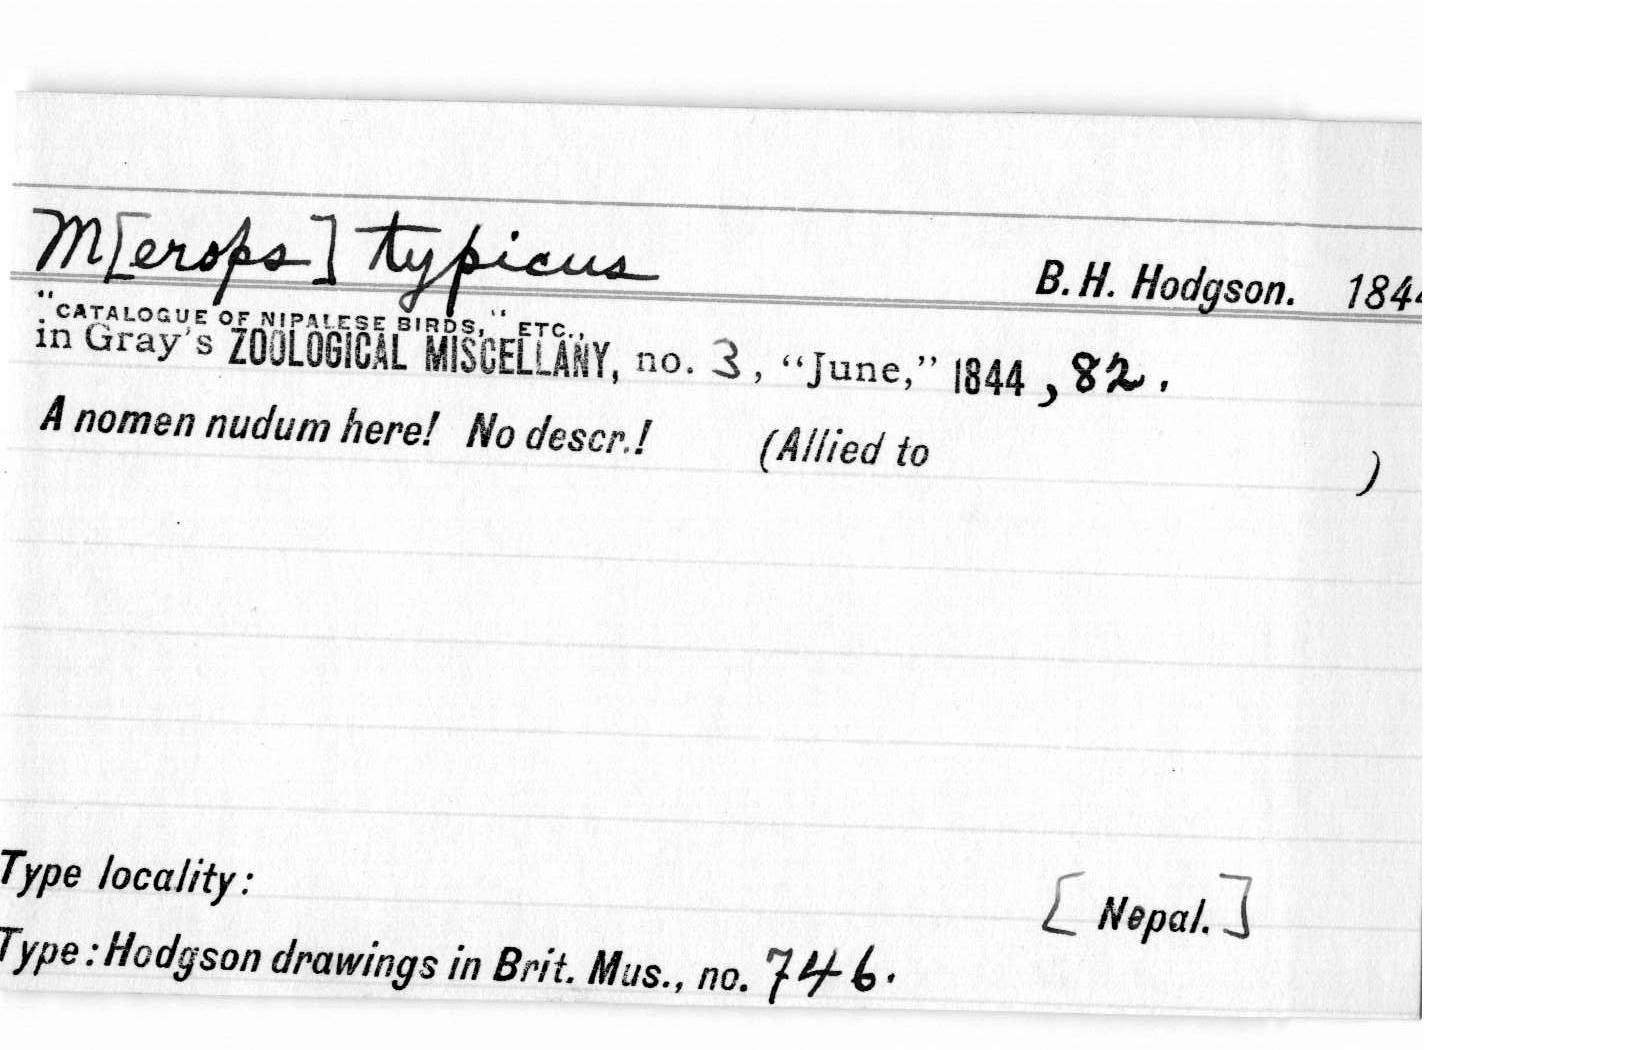 M[erops] typicus B. H. Hodgson. 1844
"CATALOGUE OF NIPALESE BIRDS," ETC.,
in Gray's ZOOLOGICAL MISCELLANY, no. 3, "June," 1844, 82.
A nomen nudum here! No descr.! (Allied to )
Type locality: [Nepal.]
Type: Hodgson drawings in Brit. Mus., no. 746.